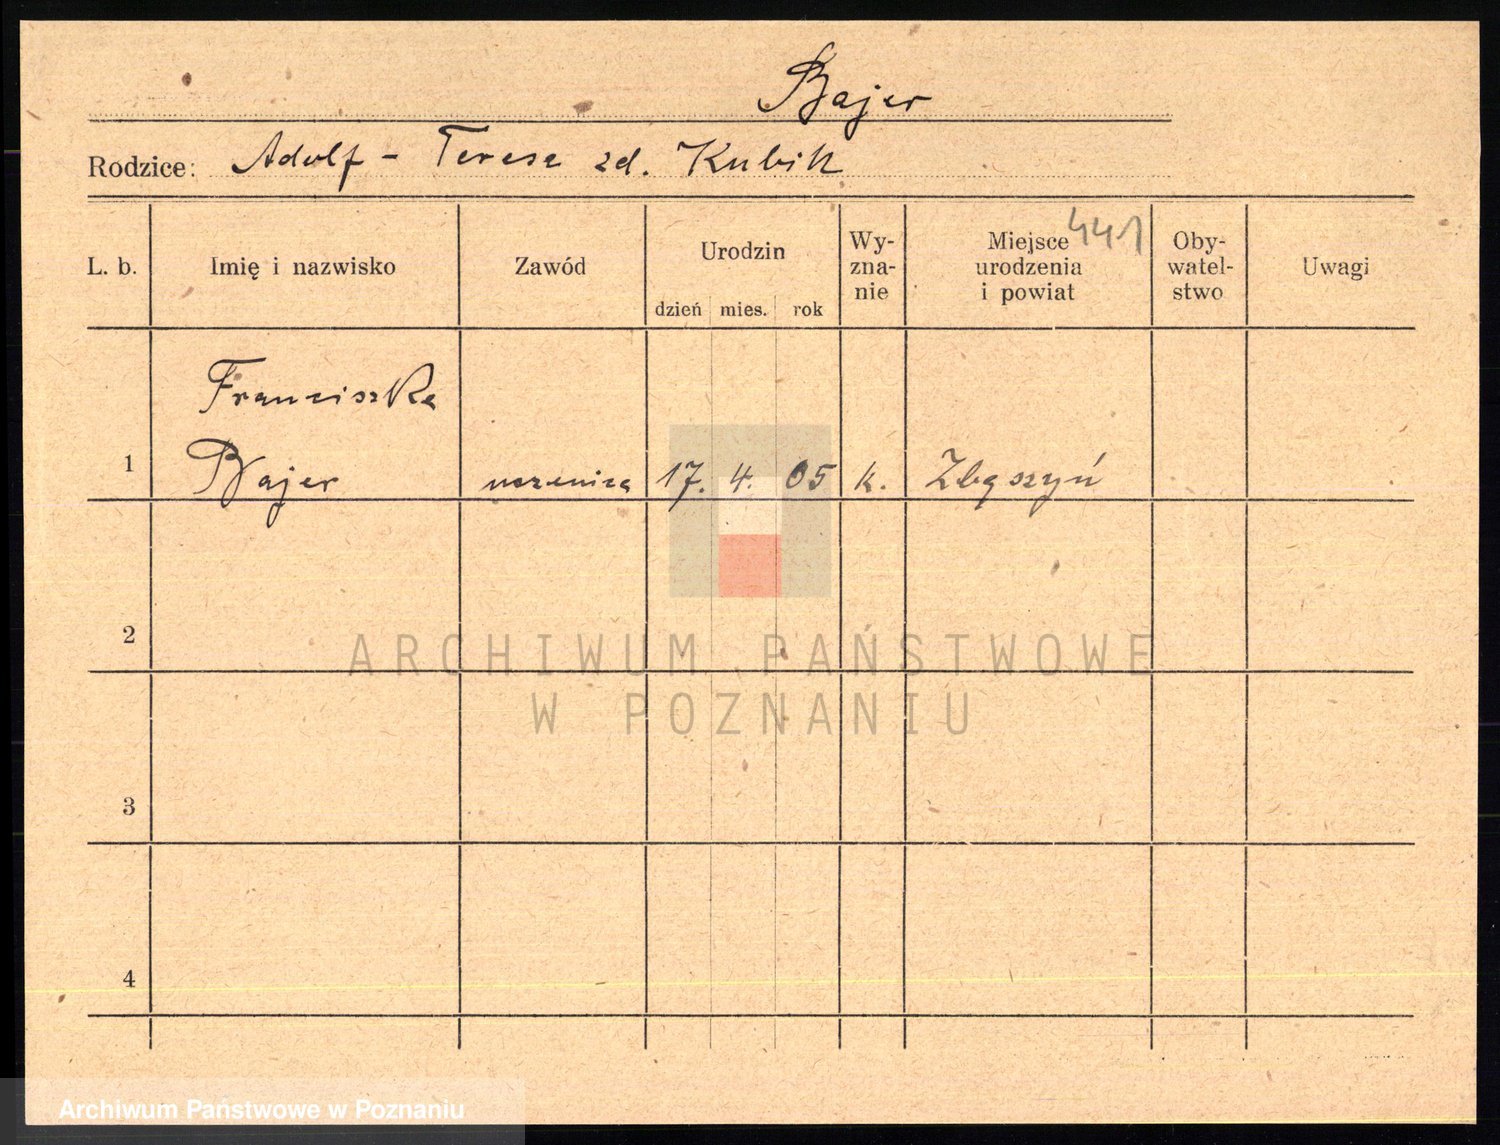 Bajer
Rodzice: Adolf - Teresa zd. Kubik
441
L. b. Imię i nazwisko Zawód Urodzin dzień mies. rok Wy-zna-nie Miejsce urodzenia i powiat Oby-watel-stwo Uwagi
Franciszka
1 Bajer uczenica 17. 4. 05 k. Zbąszyń
2
ARCHIWUM PAŃSTWOWE
W POZNANIU
3
4
Archiwum Państwowe w Poznaniu